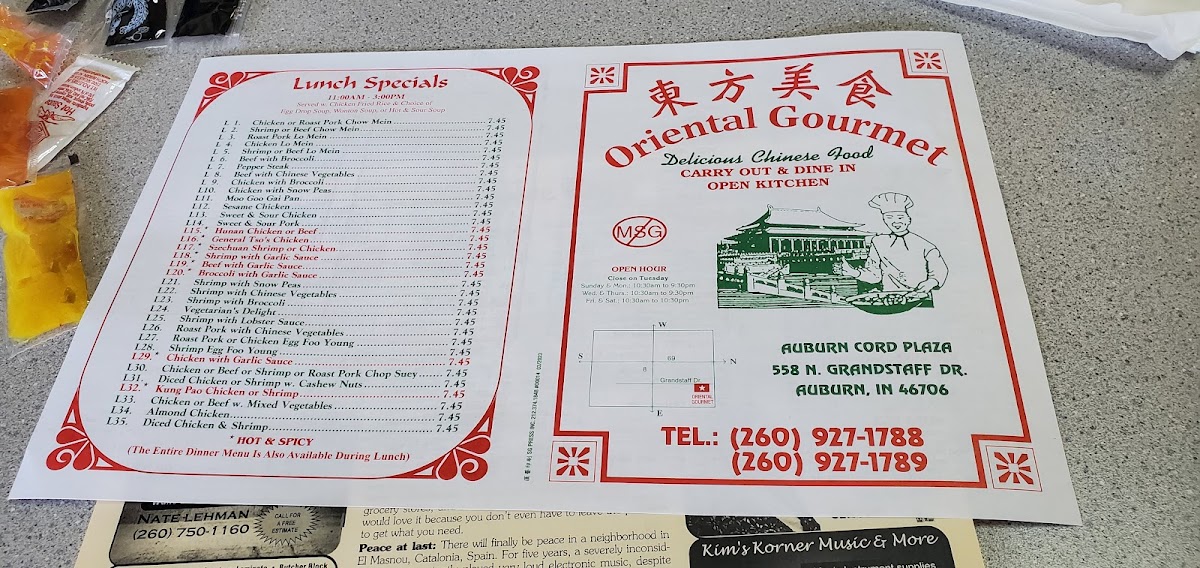 Lunch Specials
11:00AM - 3:00PM
Served w. Chicken Fried Rice & Choice of
Egg Drop Soup, Wonton Soup, or Hot & Sour Soup
L 1. Chicken or Roast Pork Chow Mein 7.45
L 2. Shrimp or Beef Chow Mein 7.45
L 3. Roast Pork Lo Mein 7.45
L 4. Chicken Lo Mein 7.45
L 5. Shrimp or Beef Lo Mein 7.45
L 6. Beef with Broccoli 7.45
L 7. Pepper Steak 7.45
L 8. Beef with Chinese Vegetables 7.45
L 9. Chicken with Broccoli 7.45
L10. Chicken with Snow Peas 7.45
L11. Moo Goo Gai Pan 7.45
L12. Sesame Chicken 7.45
L13. Sweet & Sour Chicken 7.45
L14. Sweet & Sour Pork 7.45
L15.* Hunan Chicken or Beef 7.45
L16.* General Tso's Chicken 7.45
L17.* Szechuan Shrimp or Chicken 7.45
L18.* Shrimp with Garlic Sauce 7.45
L19.* Beef with Garlic Sauce 7.45
L20.* Broccoli with Garlic Sauce 7.45
L21. Shrimp with Snow Peas 7.45
L22. Shrimp with Chinese Vegetables 7.45
L23. Shrimp with Broccoli 7.45
L24. Vegetarian's Delight 7.45
L25. Shrimp with Lobster Sauce 7.45
L26. Roast Pork with Chinese Vegetables 7.45
L27. Roast Pork or Chicken Egg Foo Young 7.45
L28. Shrimp Egg Foo Young 7.45
L29.* Chicken with Garlic Sauce 7.45
L30. Chicken or Beef or Shrimp or Roast Pork Chop Suey 7.45
L31. Diced Chicken or Shrimp w. Cashew Nuts 7.45
L32.* Kung Pao Chicken or Shrimp 7.45
L33. Chicken or Beef w. Mixed Vegetables 7.45
L34. Almond Chicken 7.45
L35. Diced Chicken & Shrimp 7.45
* HOT & SPICY
(The Entire Dinner Menu Is Also Available During Lunch)
東方美食
Oriental Gourmet
Delicious Chinese Food
CARRY OUT & DINE IN
OPEN KITCHEN
MSG
OPEN HOUR
Close on Tuesday
Sunday & Mon.: 10:30am to 9:30pm
Wed. & Thurs.: 10:30am to 9:30pm
Fri. & Sat.: 10:30am to 10:30pm
W
S
69
N
8
Grandstaff Dr.
ORIENTAL
GOURMET
E
AUBURN CORD PLAZA
558 N. GRANDSTAFF DR.
AUBURN, IN 46706
TEL.: (260) 927-1788
(260) 927-1789
NATE LEHMAN
(260) 750-1160
CALL FOR
A FREE
ESTIMATE
would love it because you don't even have to leave
to get what you need.
Peace at last: There will finally be peace in a neighborhood in
El Masnou, Catalonia, Spain. For five years, a severely inconsid-
very loud electronic music, despite
Kim's Korner Music & More